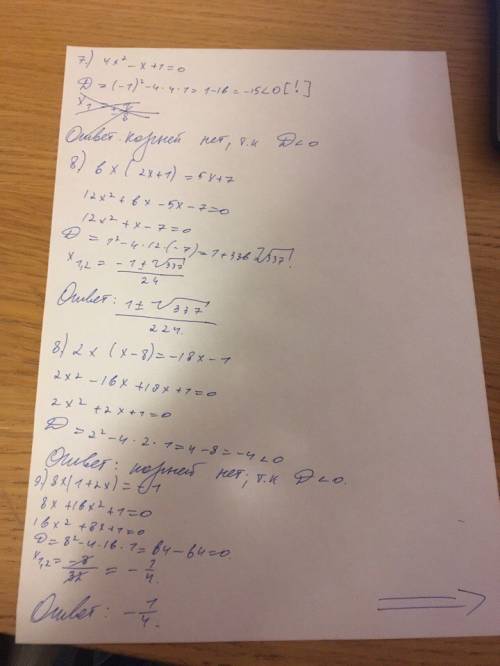 7) 4x² - x + 1 = 0
D = (-1)² - 4·4·1 = 1 - 16 = -15 < 0 [!]
Ответ. корней нет, т.к D < 0
8) 6x(2x+1) = 5x+7
12x² + 6x - 5x - 7 = 0
12x² + x - 7 = 0
D = 1² - 4·12·(-7) = 1 + 336 √337!
x₁,₂ = (-1 ± √337) / 24
Ответ: (1 ± √337) / 224.
8) 2x(x-8) = -18x - 1
2x² - 16x + 18x + 1 = 0
2x² + 2x + 1 = 0
D = 2² - 4·2·1 = 4 - 8 = -4 < 0
Ответ: корней нет, т.к D < 0.
9) 8x(1+2x) = -1
8x + 16x² + 1 = 0
16x² + 8x + 1 = 0
D = 8² - 4·16·1 = 64 - 64 = 0.
x₁,₂ = -8/32 = -1/4.
Ответ: -1/4.